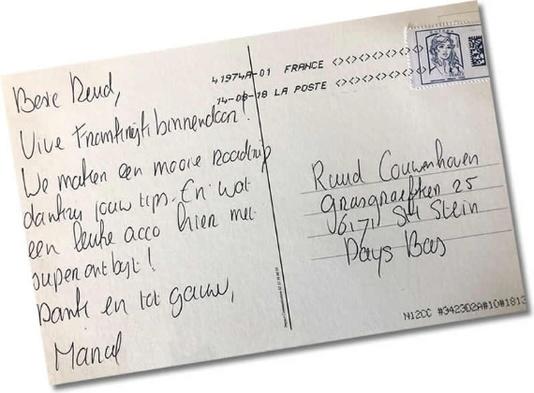 Beste Ruud,
Vive Frankrijk binnendoor!
We maken een mooie roadtrip
dankzij jouw tips. En wat
een leuke acco hier met
super ontbijt!
Dank en tot gauw,
Marcel
41974A-01 FRANCE
14-08-18 LA POSTE
Ruud Couwenhoven
Grasgraafken 25
6171 Stein
Pays Bas
N12CC #3423D2A#10#1813